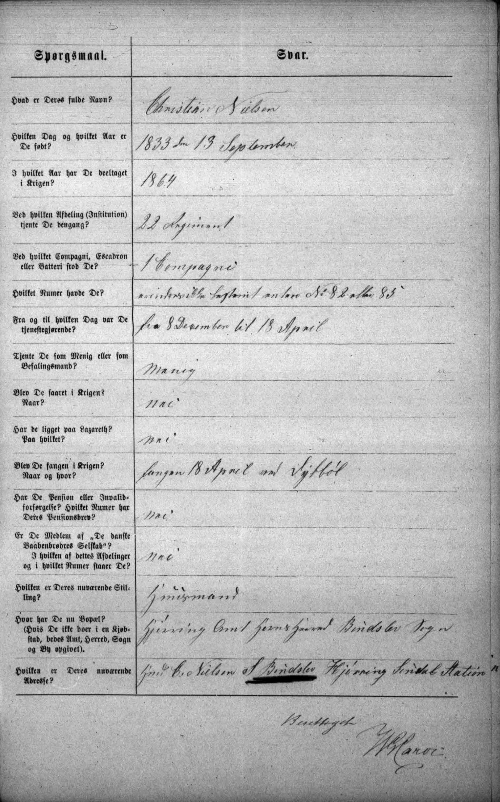 Spørgsmaal.
Svar.
Hvad er Deres fulde Navn?
Christian Nielsen
Hvilken Dag og hvilket Aar er
De født?
1833 den 13 September
I hvilket Aar har De deeltaget
i Krigen?
1864
Ved hvilken Afdeling (Institution)
tjente De dengang?
22 Regiment
Ved hvilket Compagni, Escadron
eller Batteri stod De?
1 Compagni
Hvilket Numer havde De?
No 82 eller 85
Fra og til hvilken Dag var De
tjenestegjørende?
fra 8 December til 18 April
Tjente De som Menig eller som
Befalingsmand?
Menig
Blev De saaret i Krigen?
Naar?
nei
Har de ligget paa Lazareth?
Paa hvilket?
nei
Blev De fangen i Krigen?
Naar og hvor?
fangen 18 April ved Dybbøl
Har De Pension eller Invalid-
forsørgelse? Hvilket Numer har
Deres Pensionsbrev?
nei
Er De Medlem af „De danske
Vaabenbrødres Selskab"?
I hvilken af dettes Afdelinger
og i hvilket Numer staaer De?
nei
Hvilken er Deres nuværende Stil-
ling?
Huusmand
Hvor har De nu Bopæl?
(Hvis De ikke boer i en Kjøb-
stad, bedes Amt, Herred, Sogn
og By opgivet).
Hjørring Amt Horns Herred Bindslev Sogn
Hvilken er Deres nuværende
Adresse?
C. Nielsen Bindslev Hjørring Sindal Station